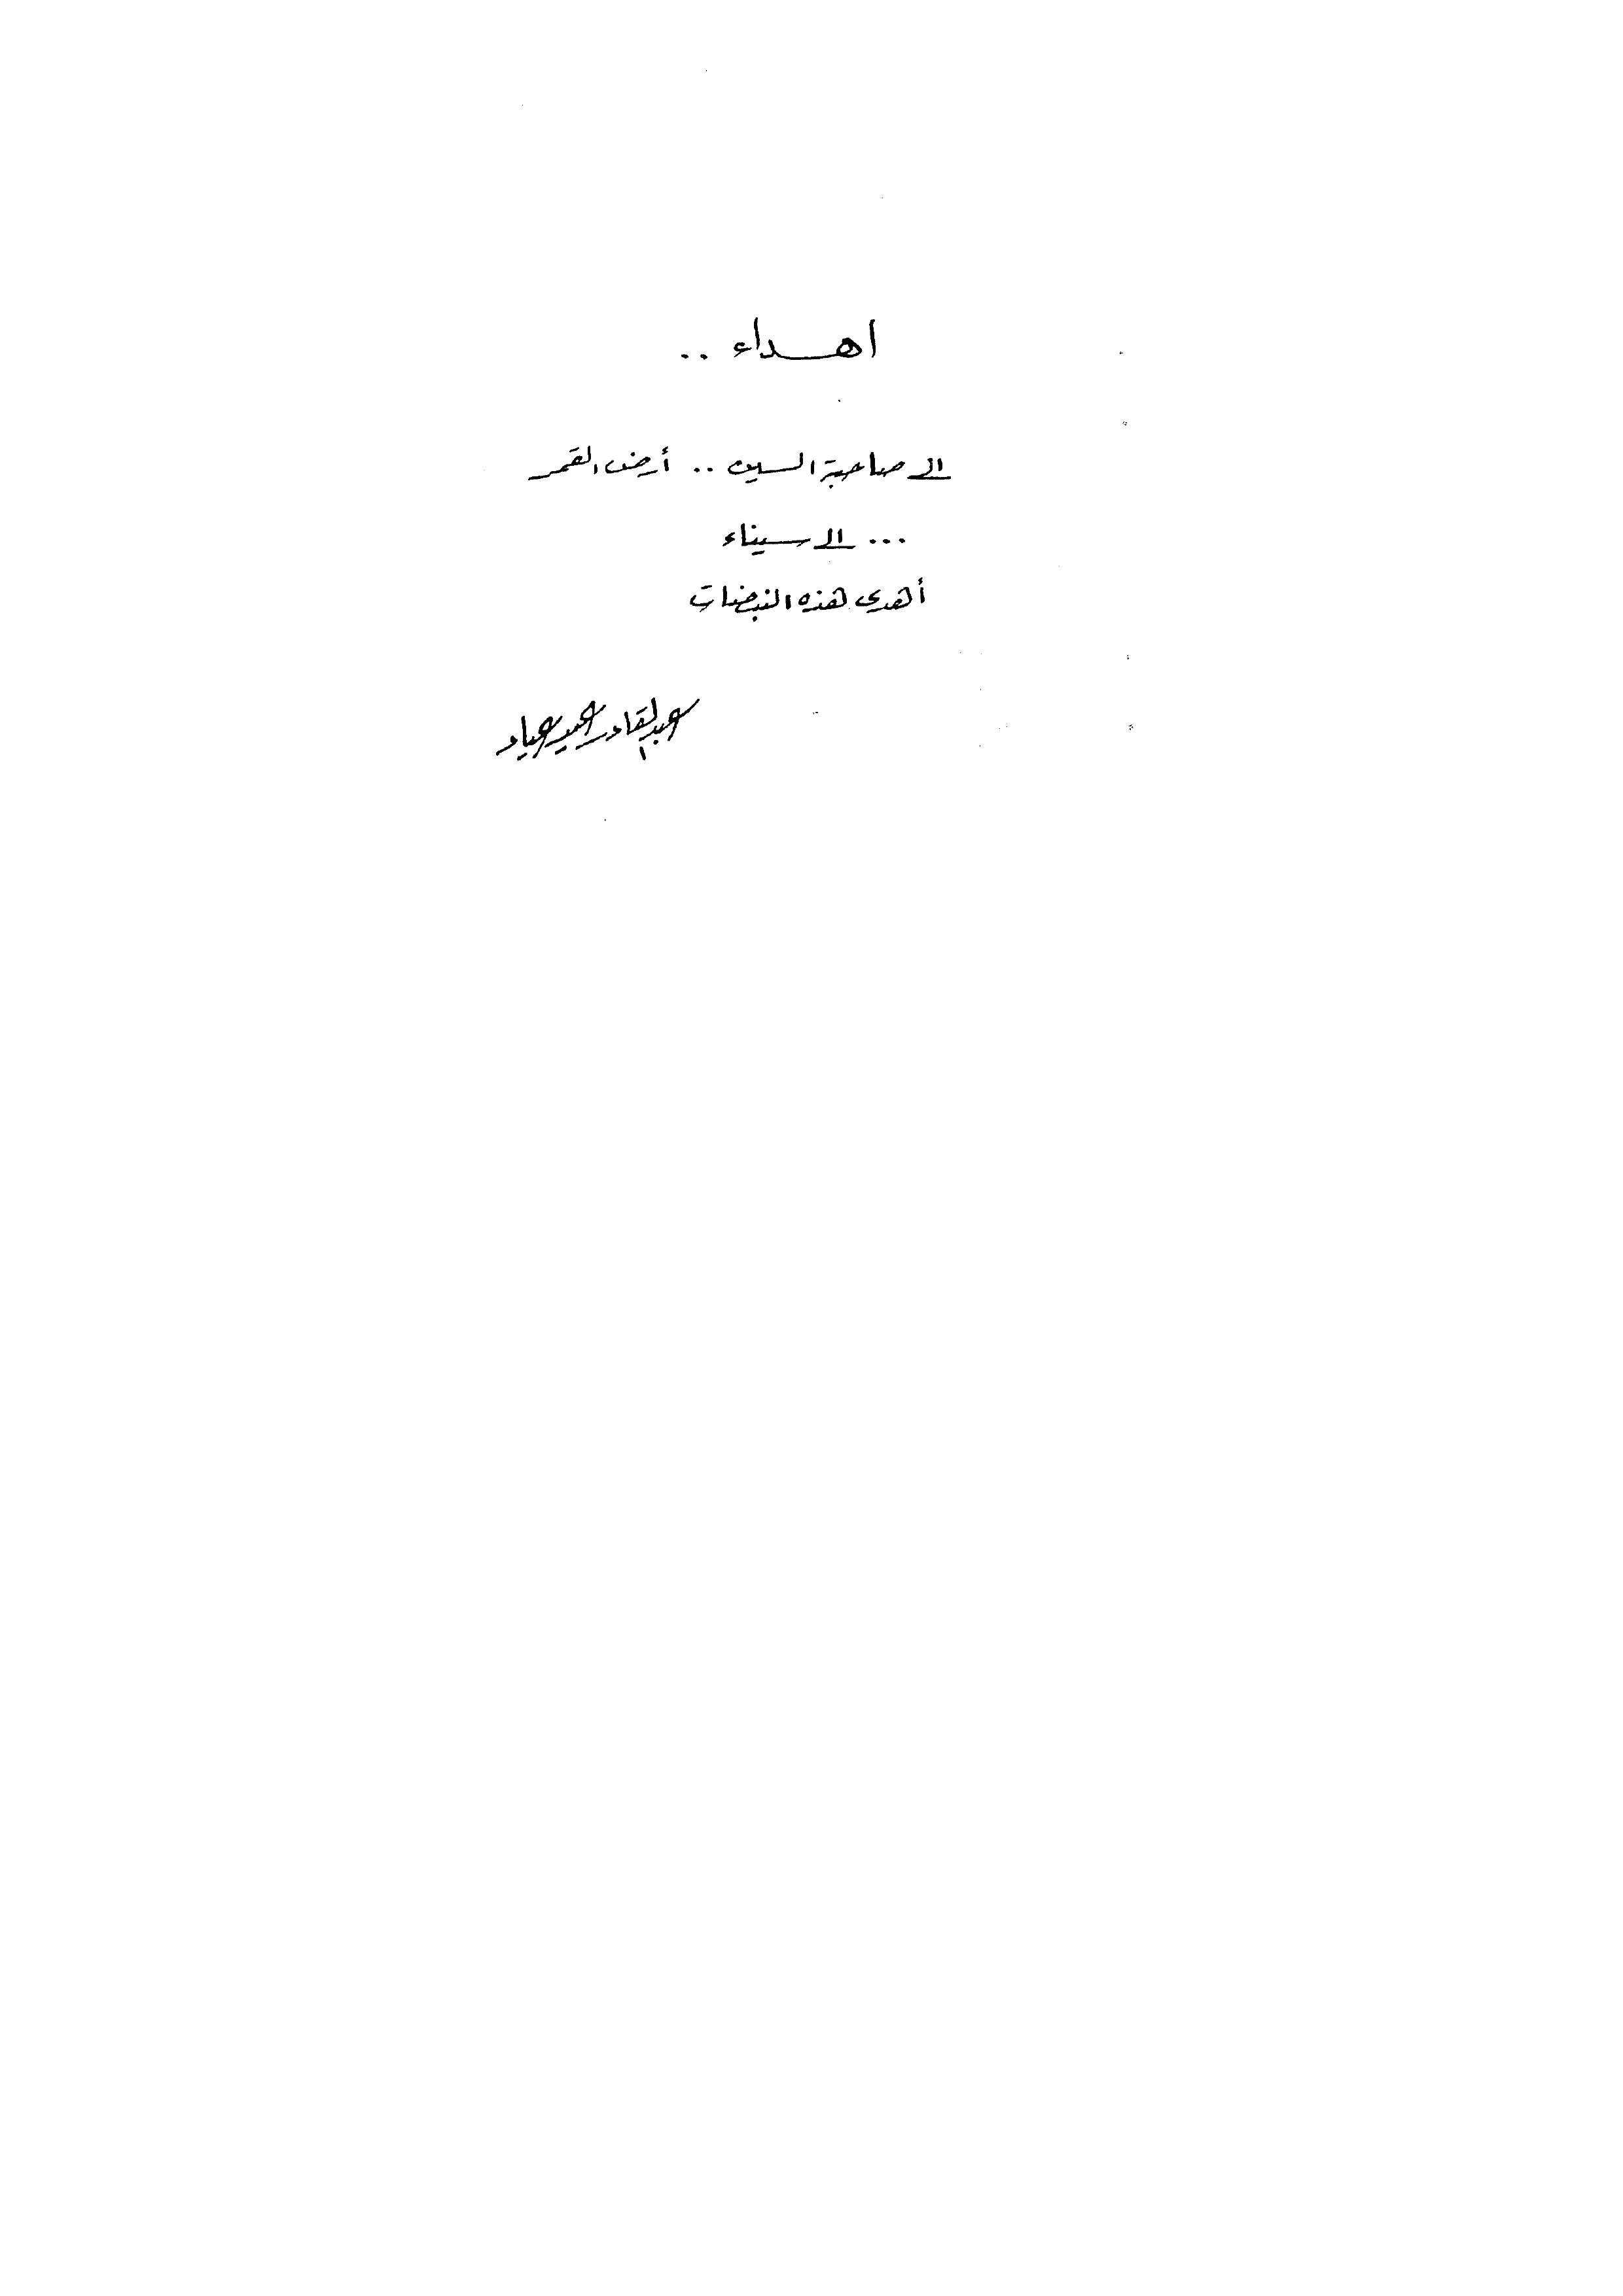 اهداء ..
الى صاحبة السين .. أرض القمر
... الى سيناء
أهدى هذه النبضات
عبدالقادر عيد عياد